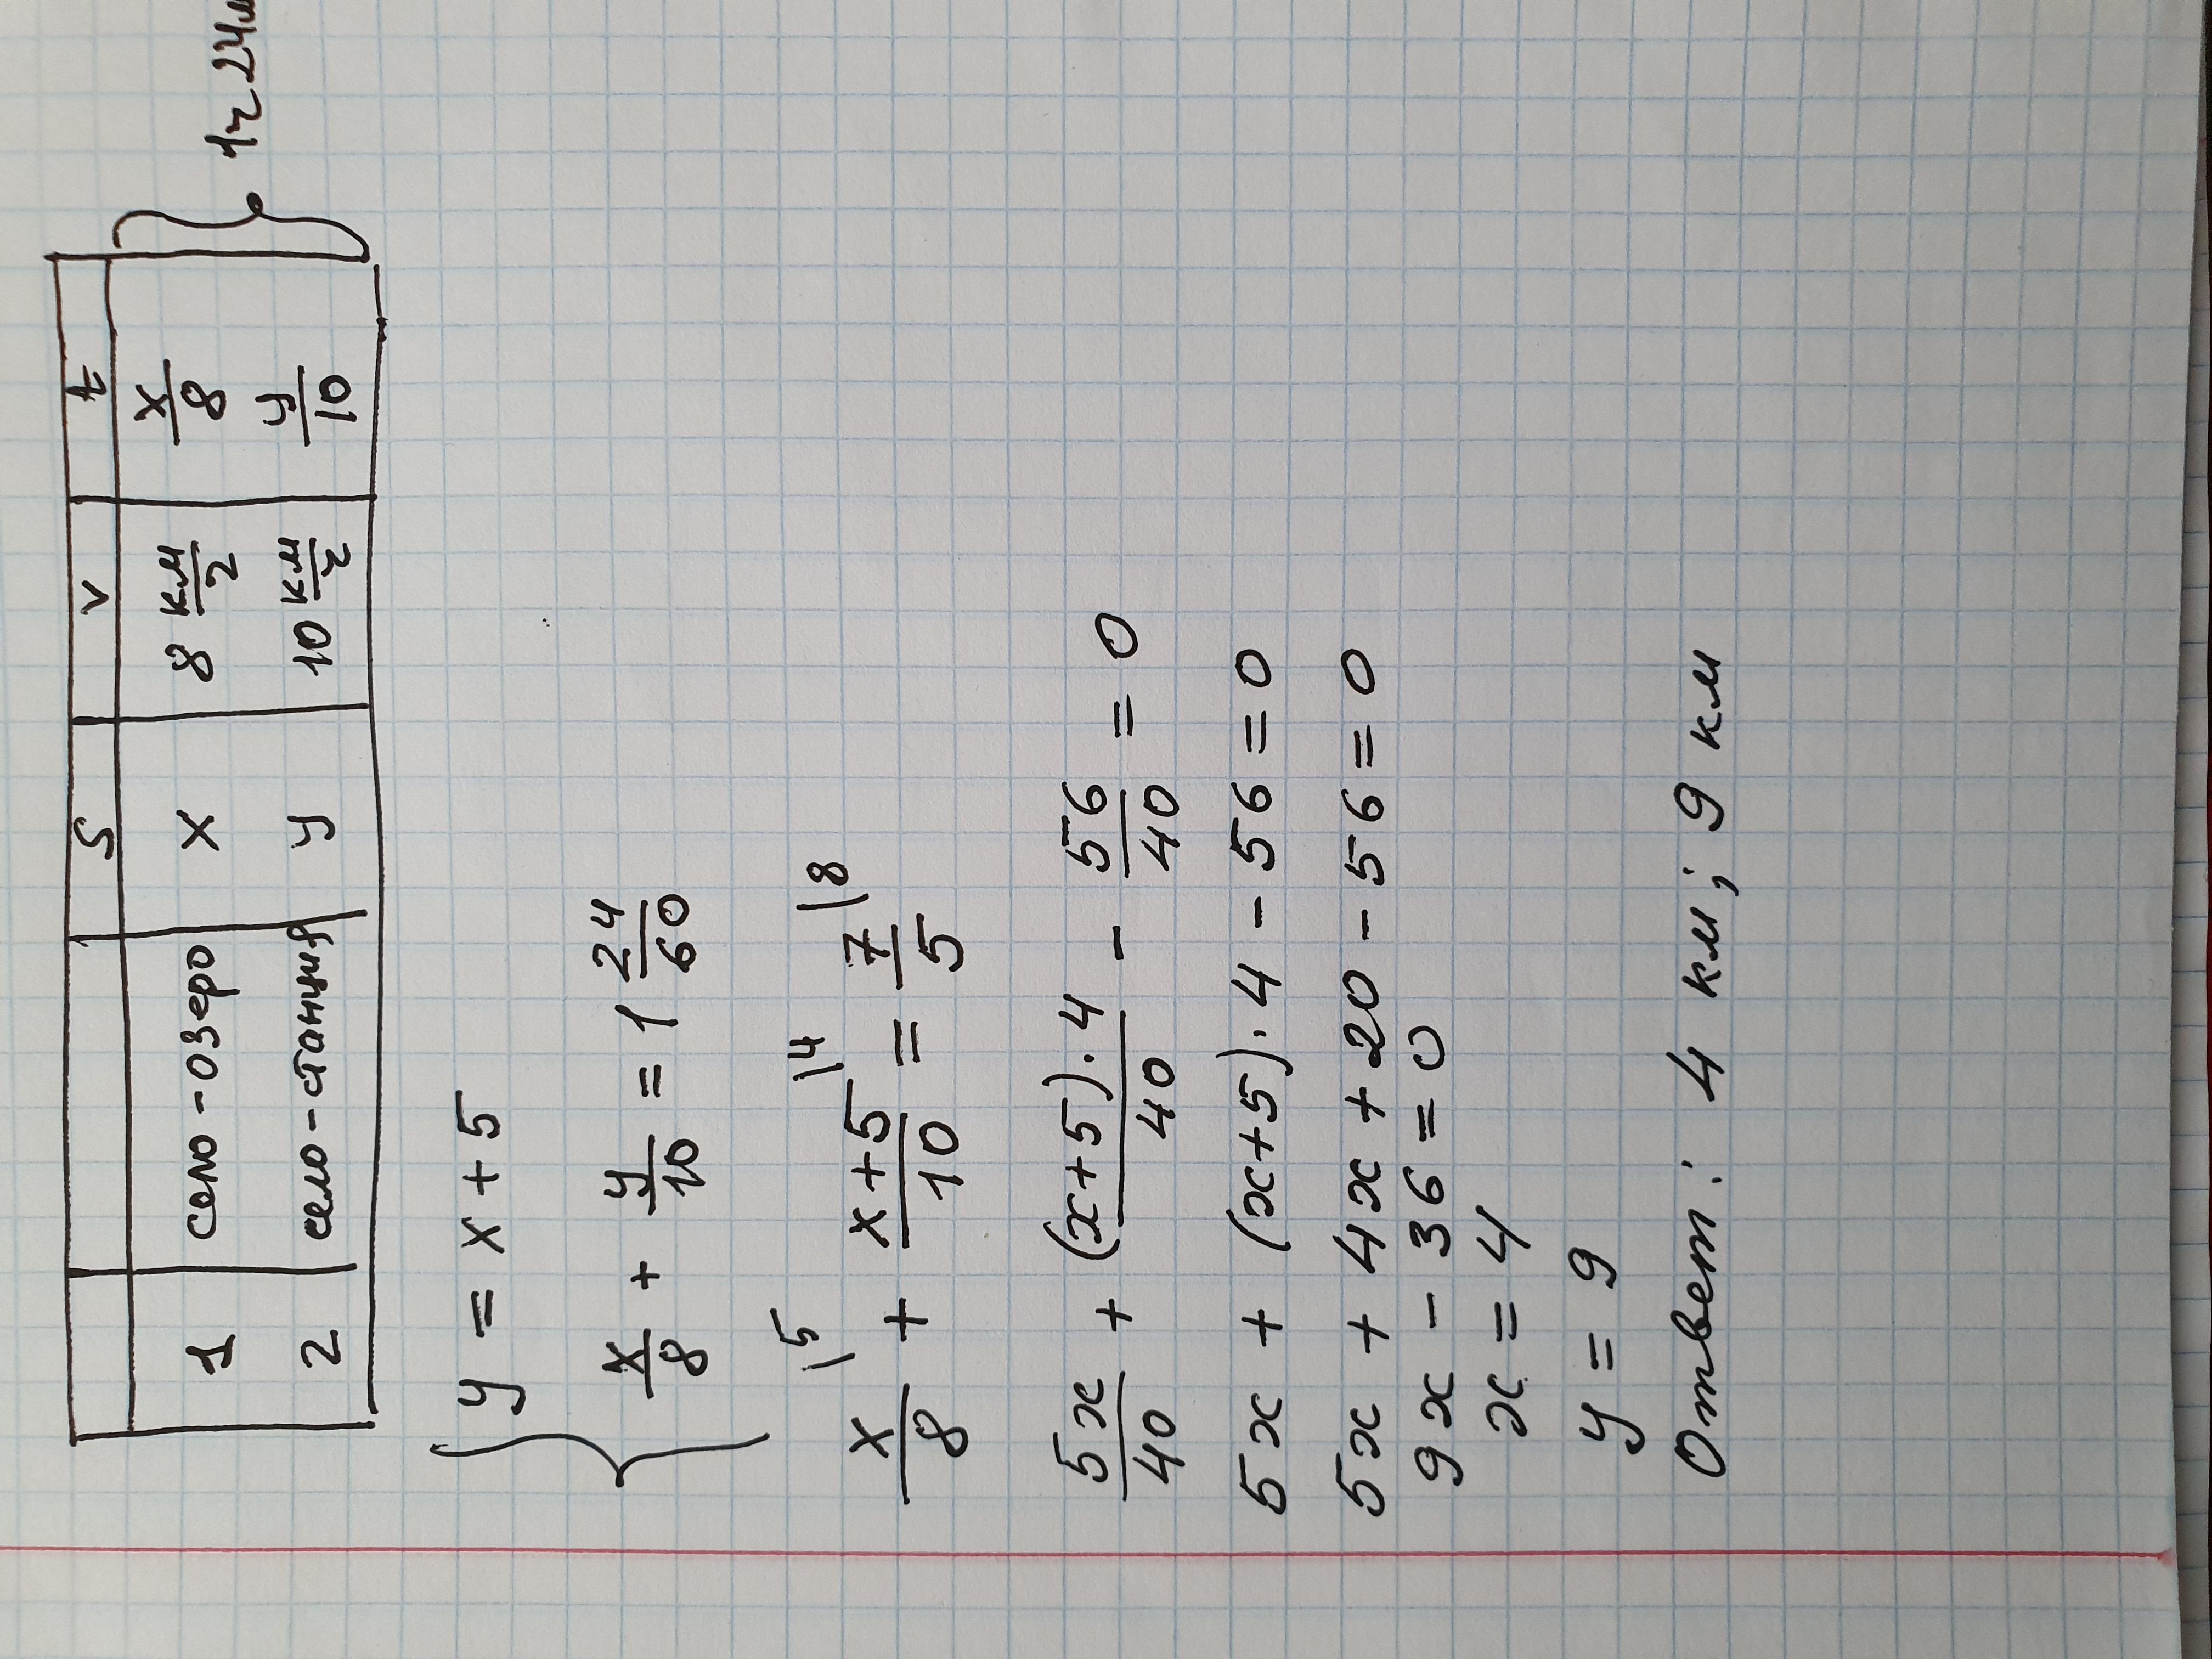 S v t
1 село-озеро x 8 км/ч x/8
2 село-станция y 10 км/ч y/10
1ч 24м
y = x + 5
x/8 + y/10 = 1 24/60
x/8 \5 + x+5/10 \4 = 7/5 \8
5x/40 + (x+5)·4/40 - 56/40 = 0
5x + (x+5)·4 - 56 = 0
5x + 4x + 20 - 56 = 0
9x - 36 = 0
x = 4
y = 9
Ответ: 4 км; 9 км